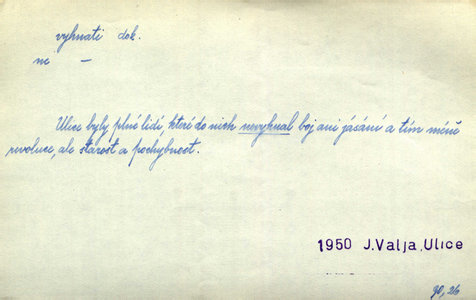 vyhnati dok.
ne —
Ulice byly plné lidí, které do nich nevyhnal boj ani jásání a tím méně
revoluce, ale starost a pochybnost.
1950 J.Valja,Ulice
90,26